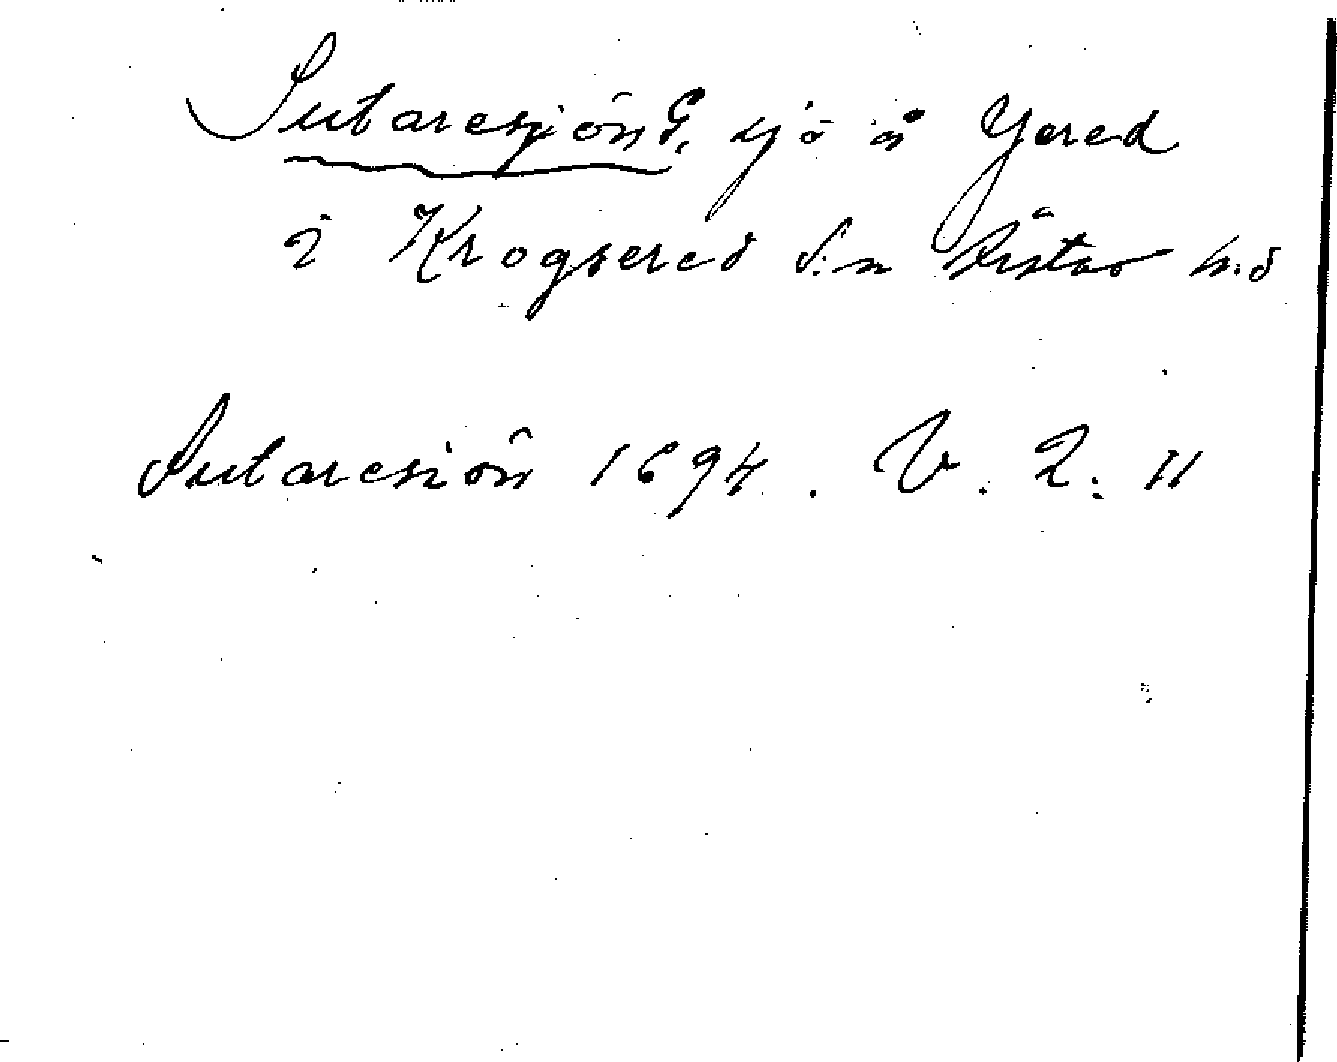 Sutaresjön S, sjö å Yered
i Krogsered s:n Årstad h:d
Sutaresiön 1694. V. 2: 11